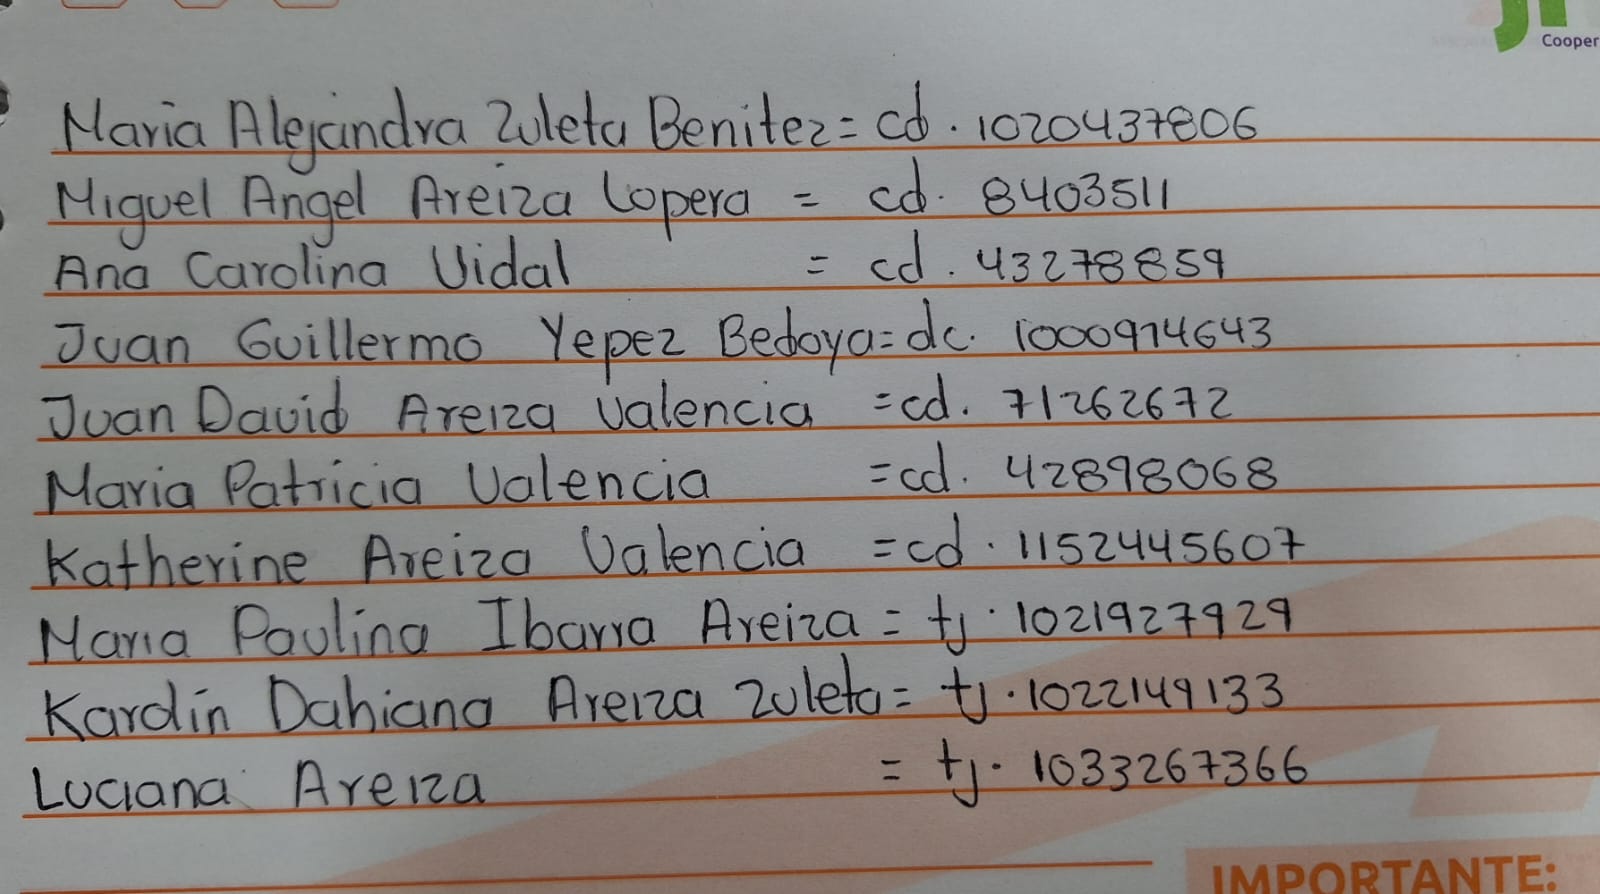 Cooper
Maria Alejandra Zuleta Benitez = cd. 1020437806
Miguel Angel Areiza Lopera = cd. 8403511
Ana Carolina Vidal = cd. 43278859
Juan Guillermo Yepez Bedoya = dc. 1000914643
Juan David Areiza Valencia = cd. 71262672
Maria Patricia Valencia = cd. 42898068
Katherine Areiza Valencia = cd. 1152445607
Maria Paulina Ibarra Areiza = tj. 1021927929
Karolin Dahiana Areiza Zuleta = tj. 1022149133
Luciana Areiza = tj. 1033267366
IMPORTANTE: